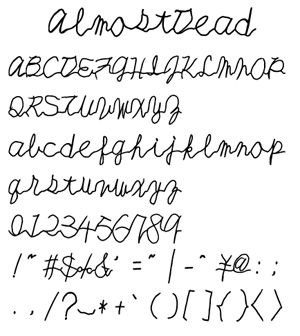 AlmostDead
ABCDEFGHIJKLMNOP
QRSTUVWXYZ
abcdefghijklmnop
qrstuvwxyz
0123456789
!"#$%&'="|-^¥@:;
.,/?_*+`()[]{}<>